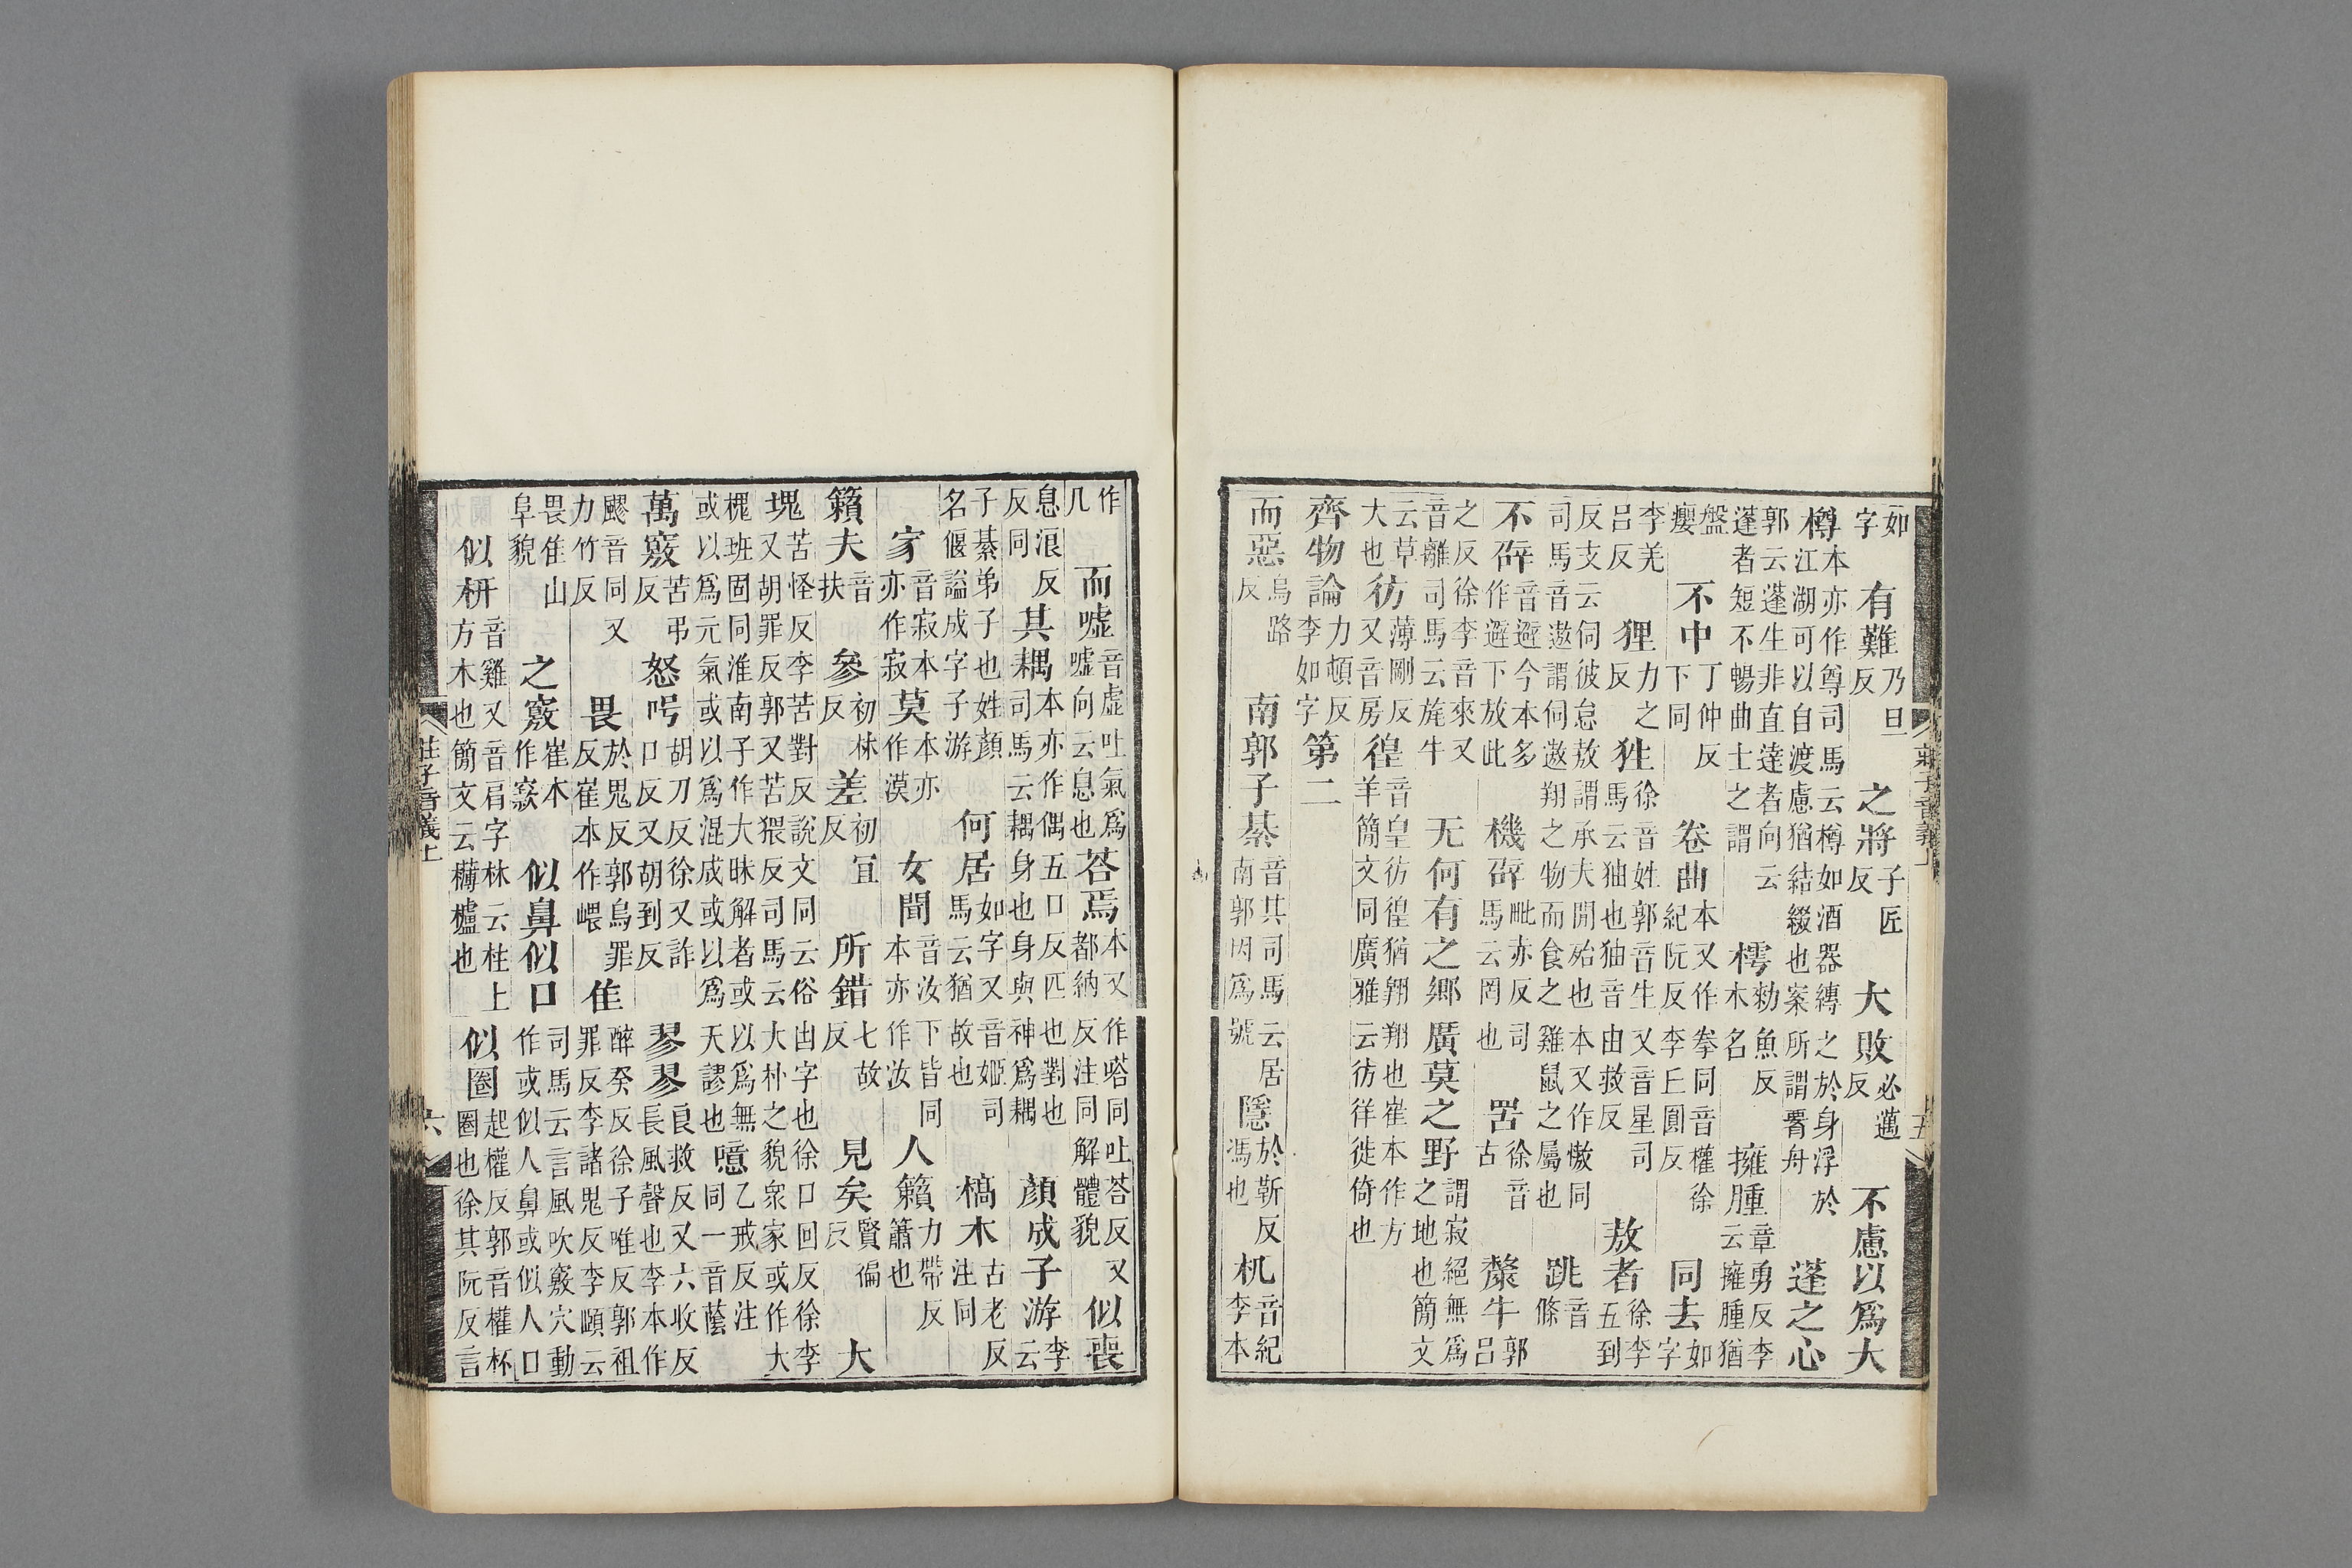 莊子音義上 五
如字 有難乃旦反 之將子匠反 大敗必邁反 不慮以爲大
樽本亦作尊司馬云樽如酒器縳之於身浮於江湖可以自渡慮猶結綴也案所謂䁏舟 蓬之心
郭云蓬生非直達者向云蓬者短不暢曲士之謂 樗勑魚反木名 擁腫章勇反李云擁腫猶
盤癭 不中丁仲反下同 卷曲本又作拳同音權徐紀阮反李丘圓反 同去如字
李羌呂反 狸力之反 狌徐音姓郭音生又音星司馬云狖也狖音由救反 敖者徐李五到
反支云伺彼怠敖謂承夫閒殆也本又作憿同司馬音遨謂伺遨翔之物而食之雞鼠之屬也 跳音條
不辟音避今本多作避下放此 機辟毗亦反司馬云罔也 罟徐音古 斄牛郭呂
之反徐李音來又音離司馬云旄牛 无何有之鄉 廣莫之野謂寂絕無爲之地也簡文
云草大也 彷薄剛反又音房 徨音皇彷徨猶翱翔也崔本作方羊簡文同廣雅云彷徉徙倚也
齊物論力頓反李如字第二
而惡烏路反 南郭子綦音其司馬云居南郭因爲號 隱於靳反馮也 机音紀李本
作几 而噓音虛吐氣爲噓向云息也 荅焉本又作嗒同吐荅反又都納反注同解體貌 似喪
息浪反反同 其耦本亦作偶五口反匹也對也司馬云耦身也身與神爲耦 顏成子游李云
子綦弟子也姓顏名偃謚成字子游 何居如字又音姬司馬云猶故也 槁木古老反注同
家音寂本亦作寂 莫本亦作漠 女聞音汝下皆同本亦作汝 人籟力帶反簫也
籟夫音扶 參初林反 差初宜反 所錯七故反 見矣賢徧反 大
塊苦怪反李苦對反說文同云俗凷字也徐口回反徐李又胡罪反郭又苦猥反司馬云大朴之貌衆家或作大
槐班固同淮南子作大昧解者或以爲無或以爲元氣或以爲混成或以爲天謬也 噫乙戒反注同一音蔭
萬竅苦弔反 怒呺胡刀反徐又詐口反又胡到反 翏翏良救反又六收反長風聲也李本作
飂音同又力竹反 畏於鬼反郭烏罪反崔本作嵔 隹醉癸反徐子唯反郭祖罪反李諸鬼反李頤云
畏隹山阜貌 之竅崔本作窾 似鼻似口司馬云言風吹竅穴動作或似人鼻或似人口
似枅音雞又音肩字林云柱上方木也簡文云欂櫨也 似圈起權反郭音權杯圈也徐其阮反言
莊子音義上 六